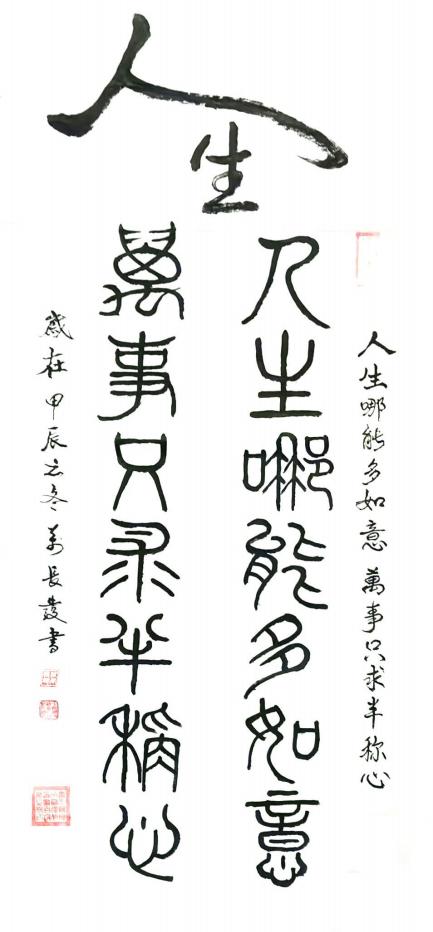 人生
人生哪能多如意 萬事只求半称心
人生哪能多如意
萬事只求半稱心
歲在甲辰立冬萬長發書